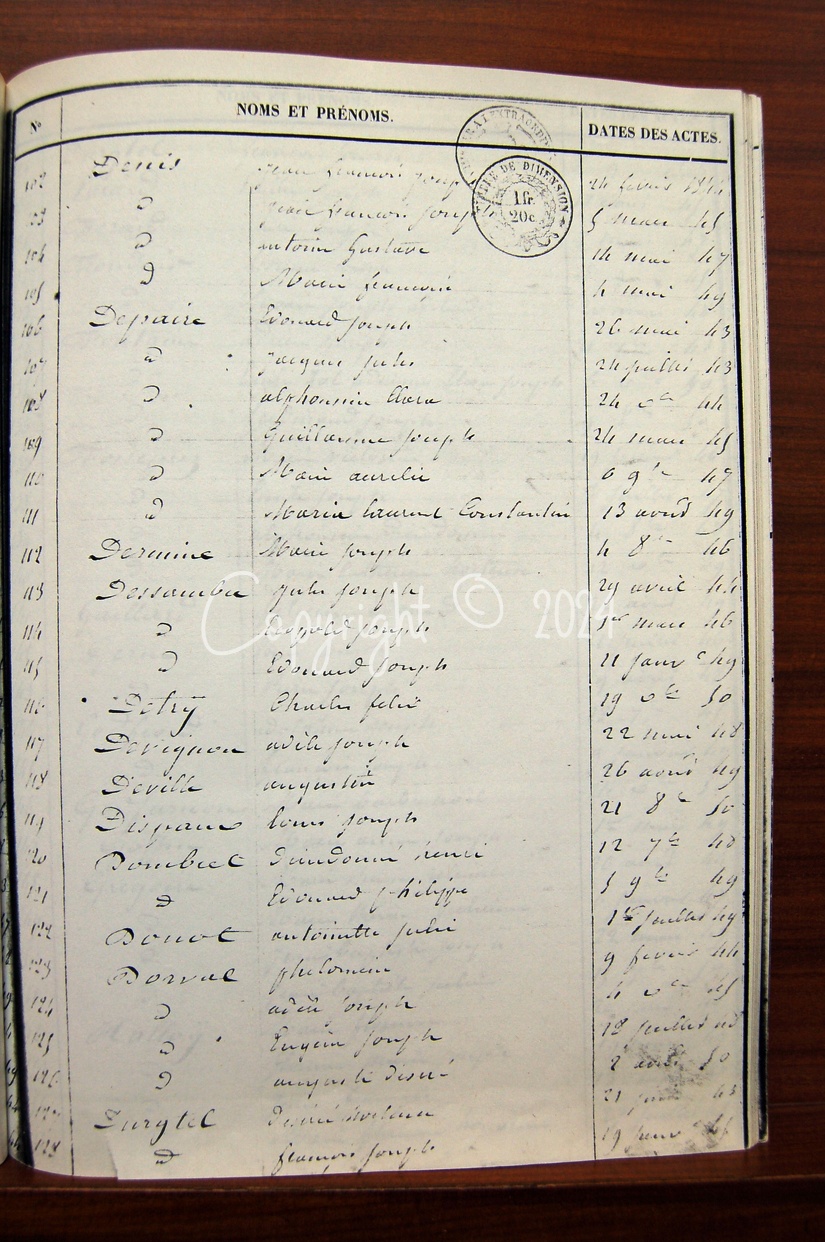 N° NOMS ET PRÉNOMS. DATES DES ACTES.
TIMBRE DE DIMENSION
1 fr.
20c.
102 Denis Jean françois Joseph 24 fevrier 1844
103 d Jean françois Joseph 5 mars 45
104 d antoine Gustave 14 mai 47
105 d Marie françoise 4 mai 49
106 Depaire Edouard Joseph 26 mai 43
107 d Jacques Jules 24 juillet 43
108 d alphonsine Clara 24 44
109 d Guillaume Joseph 24 mars 45
110 d Marie aurelie 6 9bre 47
111 d Marie Laurent Constantin 13 août 49
112 Dermine Marie Joseph 4 8bre 46
113 Dessambre Jules Joseph 29 avril 44
114 d Léopold Joseph 1er mars 46
115 d Edouard Joseph 21 janv 49
116 Detry Charles felix 19 50
117 Devignon adèle Joseph 22 mai 48
118 Deville augustin 26 août 49
119 Dispaux Louis Joseph 21 8bre 50
120 Dombret Dieudonné henri 12 7bre 48
121 d Edouard philippe 5 9bre 49
122 Donot antoinette Julie 1er juillet 49
123 Dorval philomène 9 fevrier 44
124 d adèle Joseph 4 45
125 d Eugène Joseph 18 juillet 48
126 d auguste Desiré 2 avril 50
127 Desiré 21 43
128 d françois Joseph 19 janv 45
Copyright © 2024